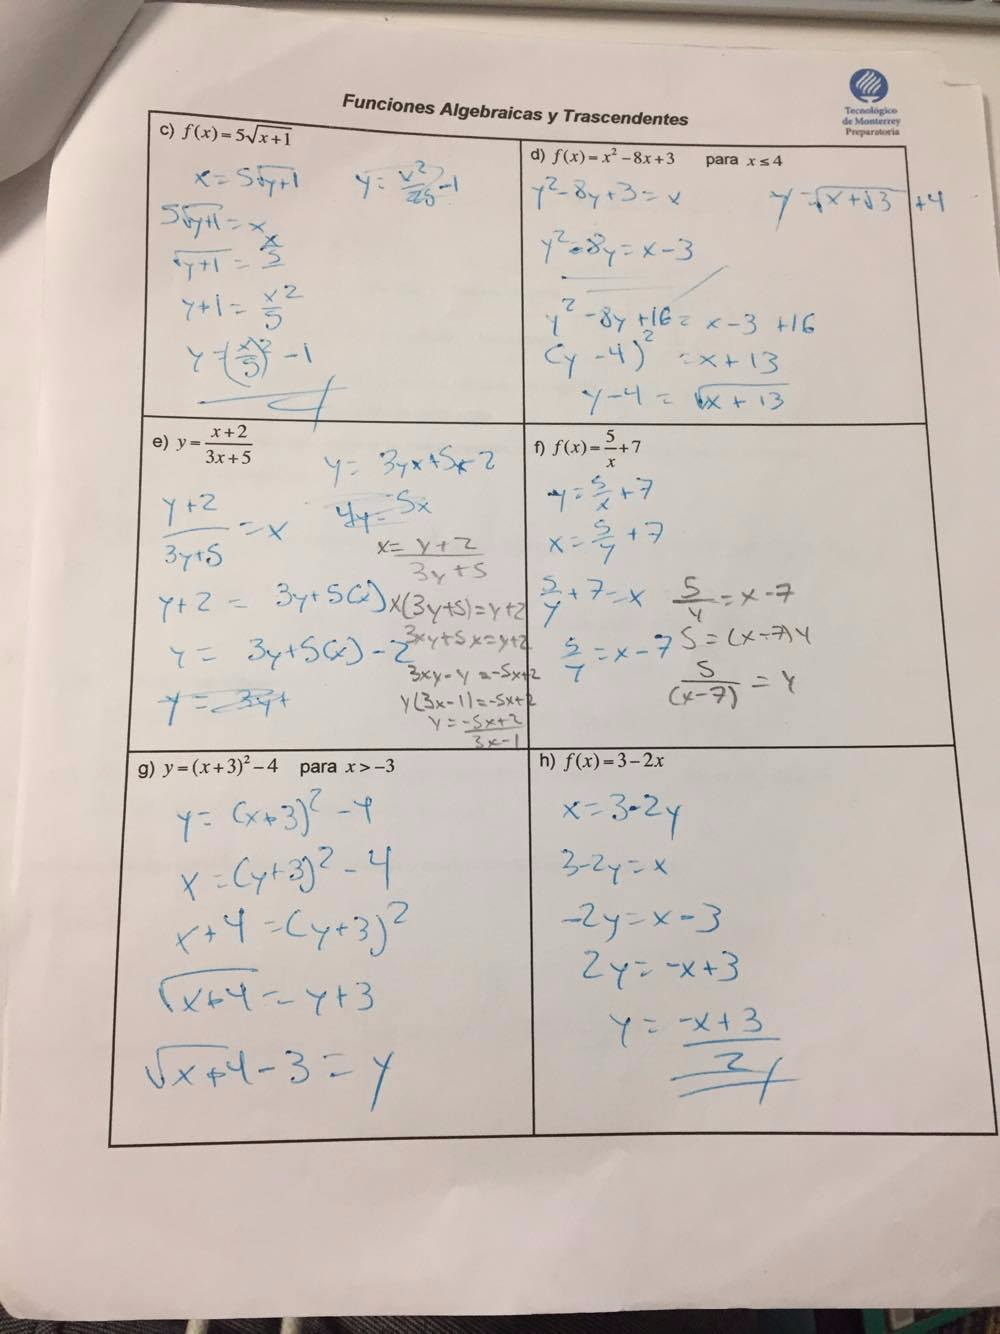 Funciones Algebraicas y Trascendentes
Tecnológico
de Monterrey
Preparatoria
c) f(x) = 5√(x+1)
x = 5√(y+1)
5√(y+1) = x
√(y+1) = x/5
y+1 = x²/5
y = (x/5)² - 1
y = x²/25 - 1
d) f(x) = x² - 8x + 3 para x ≤ 4
y² - 8y + 3 = x
y² - 8y = x - 3
y² - 8y + 16 = x - 3 + 16
(y - 4)² = x + 13
y - 4 = √(x + 13)
e) y = (x+2)/(3x+5)
(y+2)/(3y+5) = x
y+2 = 3y+5(x)
y = 3y+5(x) - 2
y = 3y+
y = 3yx+5x-2
4y = 5x
x = (y+2)/(3y+5)
x(3y+5) = y+2
3xy+5x = y+2
3xy - y = -5x+2
y(3x-1) = -5x+2
y = (-5x+2)/(3x-1)
f) f(x) = 5/x + 7
y = 5/x + 7
x = 5/y + 7
5/y + 7 = x
5/y = x - 7
5/y = x - 7
5 = (x-7)y
5/(x-7) = y
g) y = (x+3)² - 4 para x > -3
y = (x+3)² - 4
x = (y+3)² - 4
x+4 = (y+3)²
√(x+4) = y+3
√(x+4) - 3 = y
h) f(x) = 3 - 2x
x = 3-2y
3-2y = x
-2y = x - 3
2y = -x+3
y = (-x+3)/2